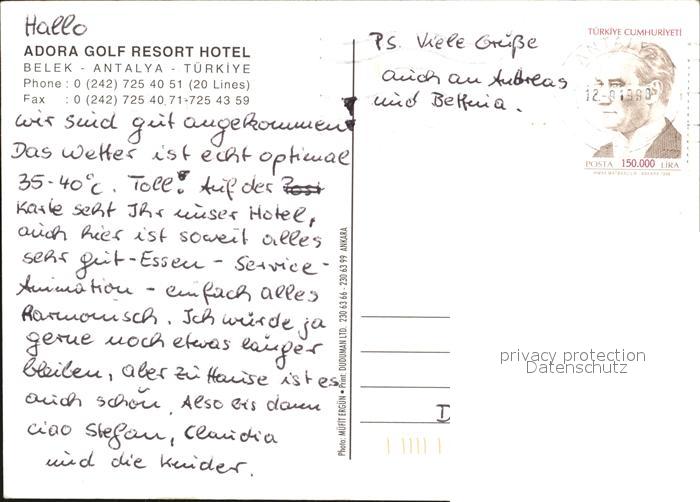 Hallo
ADORA GOLF RESORT HOTEL
BELEK - ANTALYA - TÜRKİYE
Phone : 0 (242) 725 40 51 (20 Lines)
Fax : 0 (242) 725 40 71-725 43 59
wir sind gut angekommen
Das Wetter ist echt optimal
35-40°C. Toll! Auf der Post
Karte seht Ihr unser Hotel,
auch hier ist soweit alles
sehr gut - Essen - Service -
Animation - einfach alles
Harmonisch. Ich würde ja
gerne noch etwas länger
bleiben, aber zu Hause ist es
auch schön. Also bis dann
ciao Stefan, Claudia
und die Kinder.
Photo: MÜFİT ERGÜN • Print: DUDUMAN LTD. 230 63 66 - 230 63 99 ANKARA
PS. Viele Grüße
auch an Andreas
und Bettina.
TÜRKİYE CUMHURİYETİ
POSTA 150.000 LİRA
privacy protection
Datenschutz